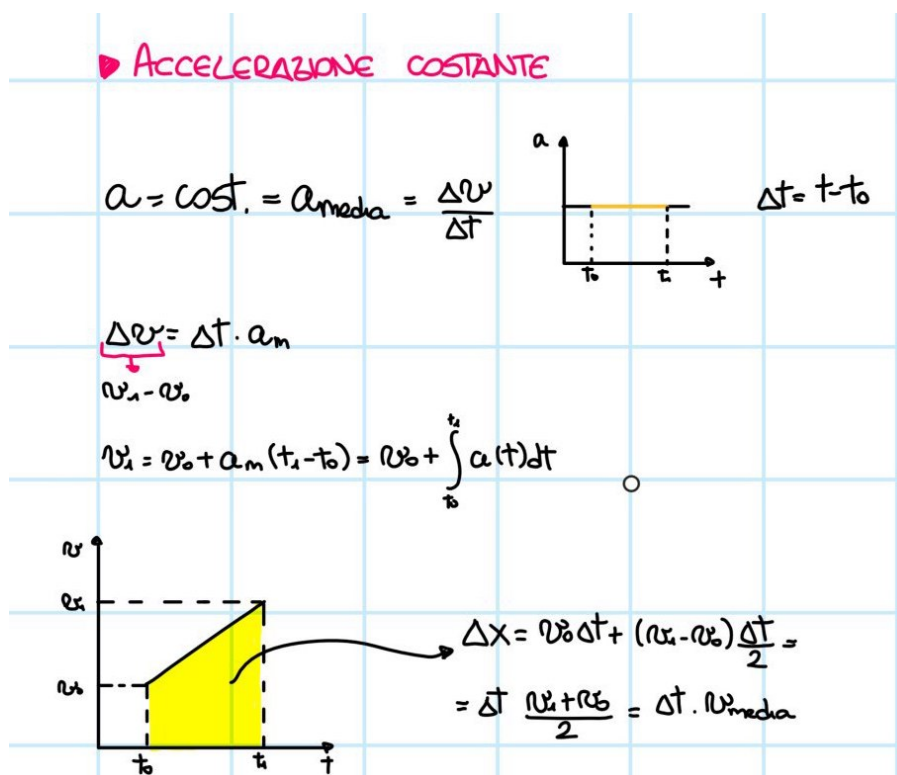 ► ACCELERAZIONE COSTANTE
a = cost. = a_media = Δv/Δt
a
t₀ t₁ t
Δt = t-t₀
Δv = Δt · a_m
v₁-v₀
v₁ = v₀ + a_m (t₁-t₀) = v₀ + ∫_{t₀}^{t₁} a(t)dt
v
v₁
v₀
t₀ t₁ t
Δx = v₀Δt + (v₁-v₀) Δt/2 =
= Δt (v₁+v₀)/2 = Δt · v_media